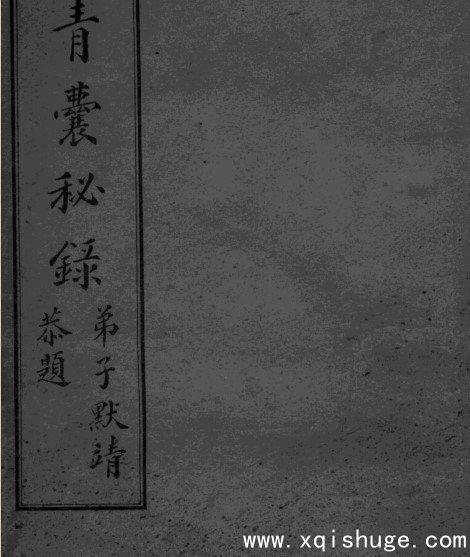 青囊秘錄
弟子默靖
恭題
www.xqishuge.com